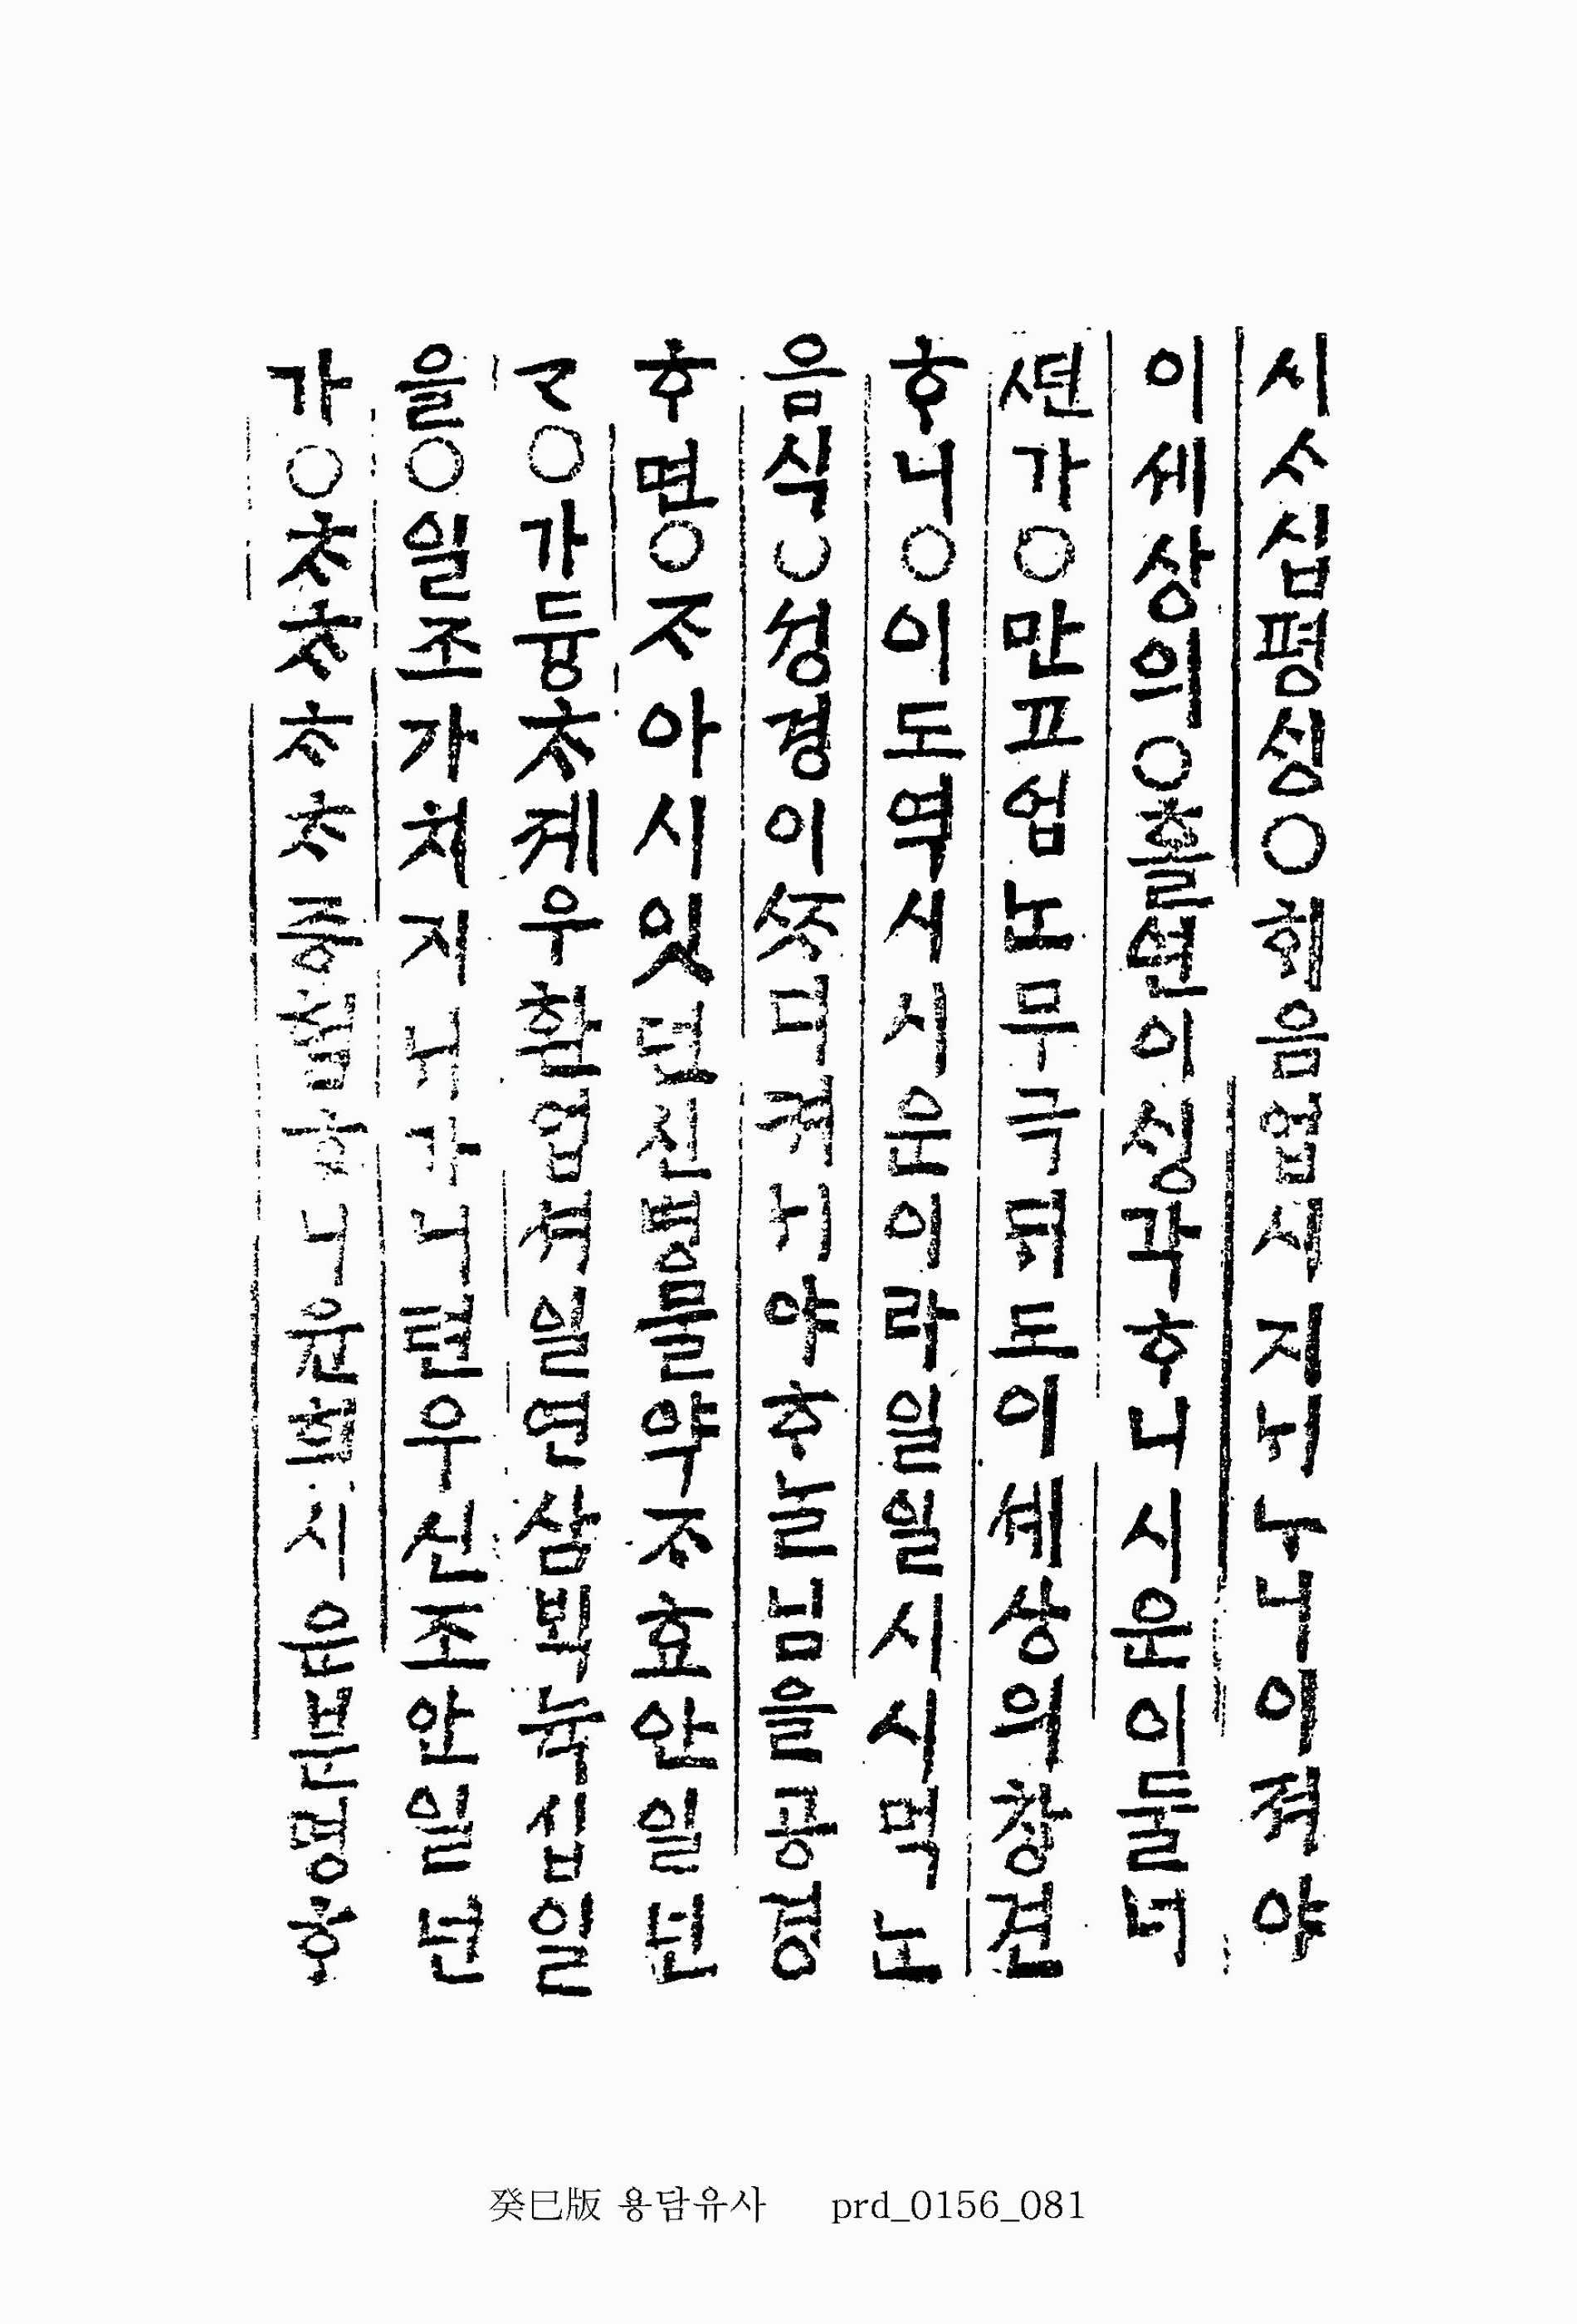 시ᄉᆞ십평ᄉᆡᆼ○ᄒᆡ음업시지ᄂᆡᄂᆞ니이져야
이세상의○홀연이ᄉᆡᆼ각ᄒᆞ니시운이둘너
ᄯᅧᆫ가○만고업ᄂᆞᆫ무극ᄃᆡ도이셰상의창견
ᄒᆞ니○이도역시시운이라일일시시먹ᄂᆞᆫ
음식○셩경이ᄶᆞ디켜ᄂᆡ야ᄒᆞᄂᆞᆯ님을공경
ᄒᆞ면○ᄌᆞ아시잇던신병물약ᄌᆞ효안일년
ᄀᆞ○가듕ᄎᆞ졔우환업셔일연삼ᄇᆡᆨ뉵십일
을○일조가치지ᄂᆡ가니텬우신조안일년
가○ᄎᆞᄎᆞᄎᆞᄎᆞ증험ᄒᆞ니윤회시운분명ᄒᆞ
癸巳版 용담유사 prd_0156_081